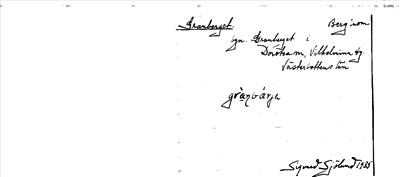 Granberget. Berg inom
byn Granberget i
Dorotea sn, Vilhelmina tg.
Västerbottens län
gràn̥bárje
Sigurd Sjölund 1925